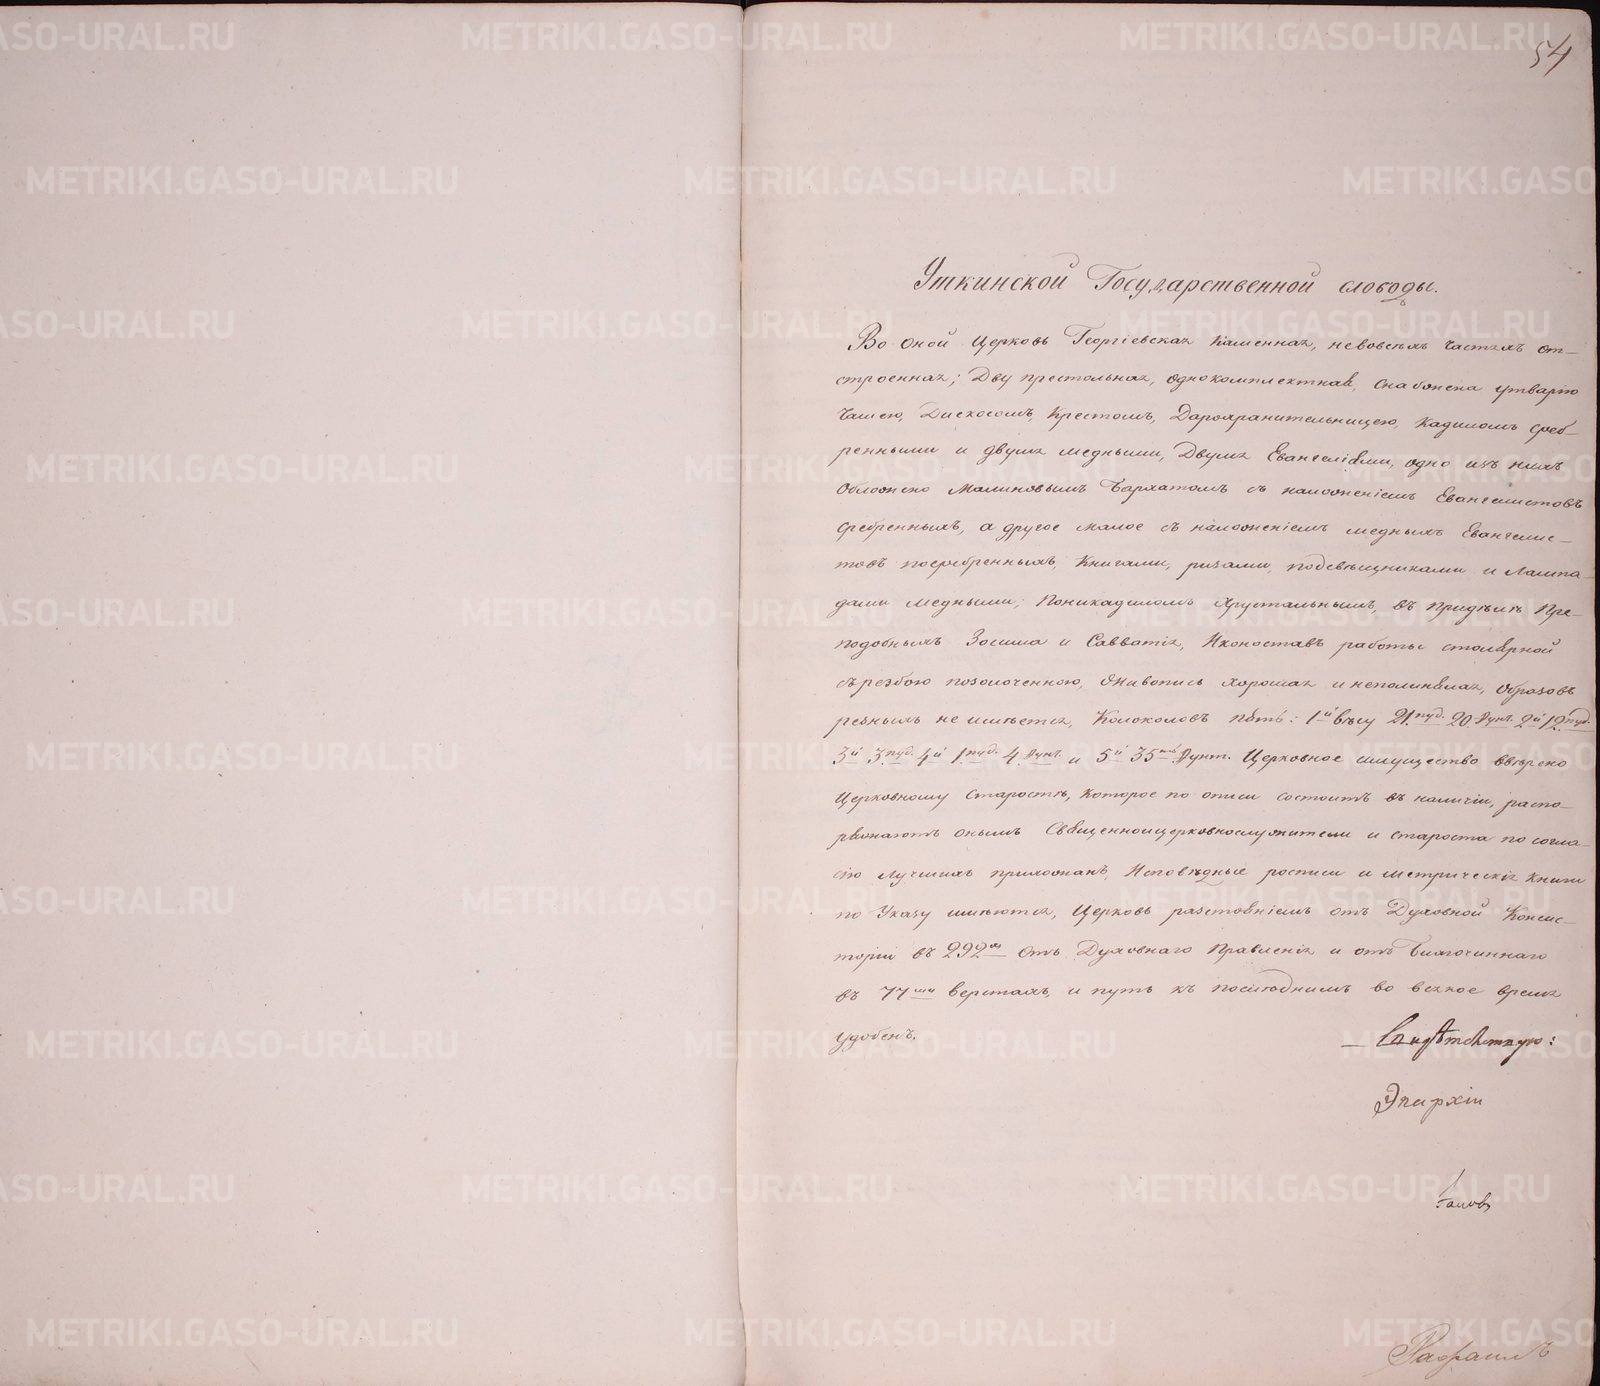 54
Уткинской Государственной слободы.
Во оной Церковь Георгіевская каменная, невовсѣхъ частяхъ от-
строенная; Двупрестольная, однокомплектная, снабжена утварію
Чашею, Дискосомъ, Крестомъ, Дарохранительницею, Кадиломъ среб-
ренными и двумя медными, Двумя Евангеліями, одно изъ нихъ
Обложено Малиновымъ Бархатомъ съ наложеніемъ Евангелистовъ
Сребренныхъ, а другое малое съ наложеніемъ медныхъ Евангелис-
товъ посребренныхъ, Книгами, ризами, подсвѣщниками и Лампа-
дами Медными, Поникадиломъ Хрустальнымъ, въ Придѣлѣ Пре-
подобныхъ Зосима и Савватія, Иконоставъ работы столярной
съ резбою позолоченною, Живопись хорошая и неполинялая, Образовъ
резныхъ не имѣется, Колоколовъ пять: 1й вѣсу 21. пуд. 20 Фунт. 2й 12. пуд.
3й 3. пуд. 4й 1 пуд. 4. Фунт. и 5й 35ть Фунт. Церковное имущество ввѣрено
Церковному Старостѣ, Которое по описи состоитъ въ наличіи, распо-
ряжаютъ онымъ Священноицерковнослужители и староста по согла-
сію лучшихъ прихожанъ, Исповѣдные росписи и метрическія книги
по Указу имѣются, Церковь разстояніемъ отъ Духовной Консис-
торіи въ 292 отъ Духовнаго Правленія и отъ Благочиннаго
въ 77 верстахъ, и путь къ послѣднимъ во всякое время
удобенъ.
Эпархіи
Рафаилъ
METRIKI.GASO-URAL.RU